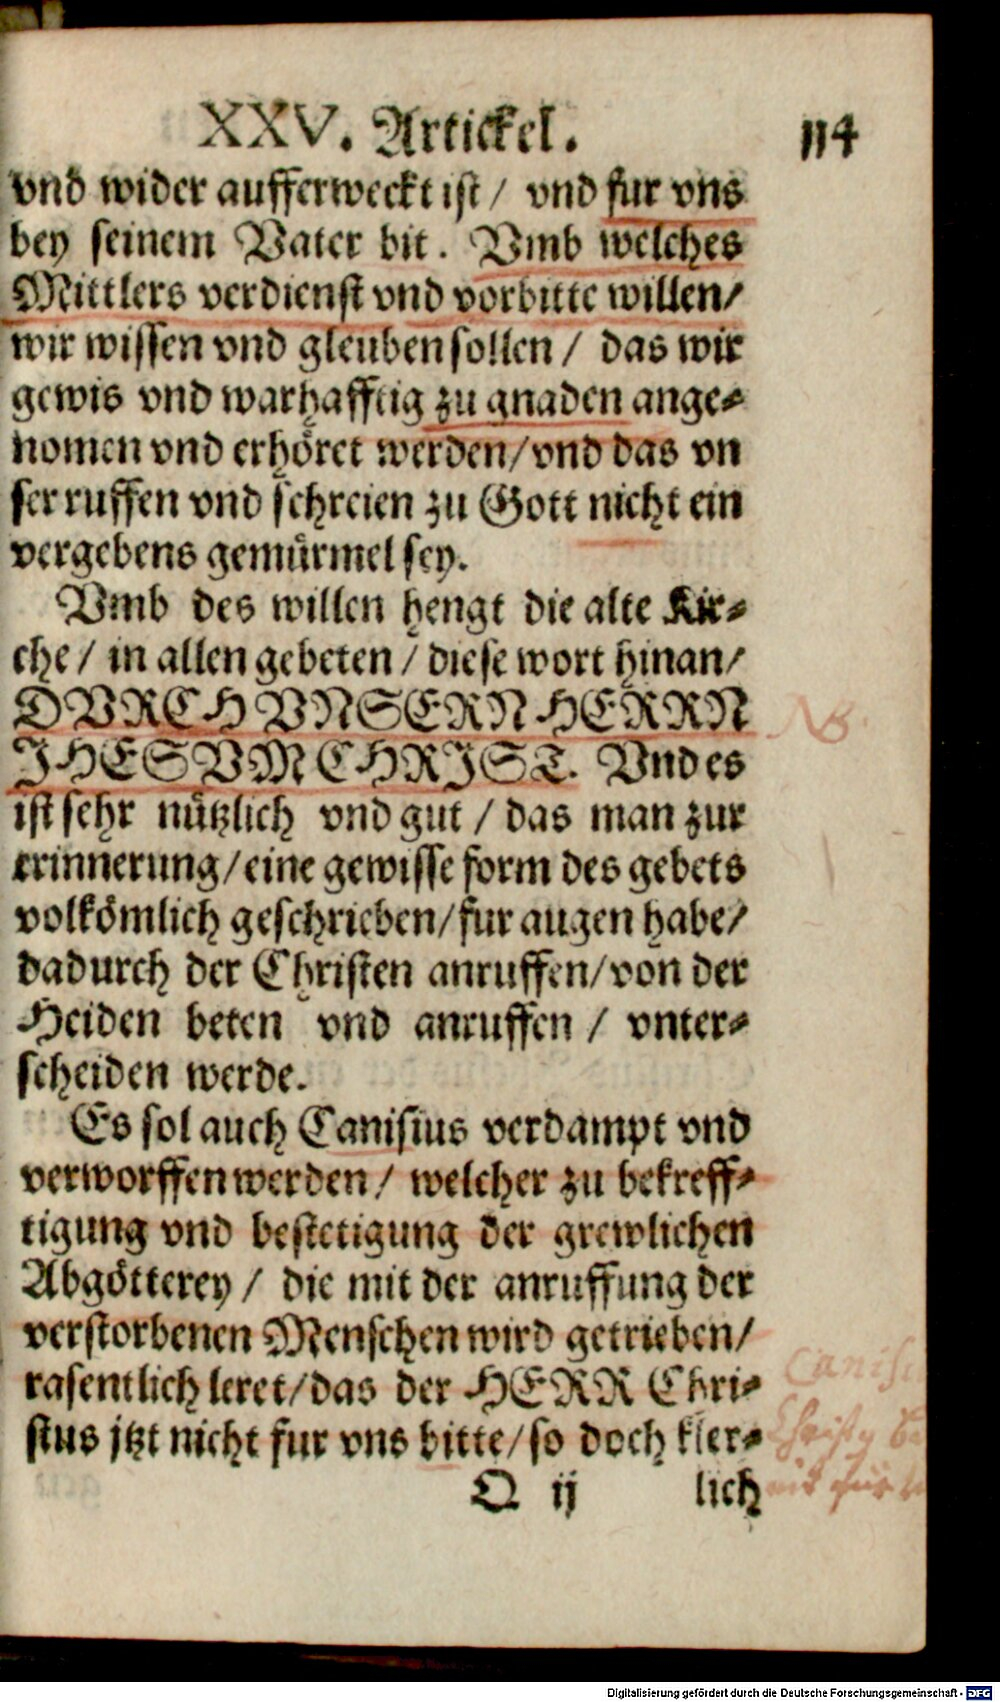 XXV. Artickel. 114
vnd wider aufferweckt ist / vnd fur vns
bey seinem Vater bit. Vmb welches
Mittlers verdienst vnd vorbitte willen/
wir wissen vnd gleuben sollen / das wir
gewis vnd warhafftig zu gnaden ange⸗
nomen vnd erhöret werden/vnd das vn
ser ruffen vnd schreien zu Gott nicht ein
vergebens gemürmel sey.
Vmb des willen hengt die alte Kir⸗
che / in allen gebeten / diese wort hinan/
DVRCH VNSERN HERRN
NB.
JHESVM CHRIST. Vnd es
ist sehr nützlich vnd gut / das man zur
erinnerung/eine gewisse form des gebets
volkömlich geschrieben/fur augen habe/
dadurch der Christen anruffen/von der
Heiden beten vnd anruffen / vnter⸗
scheiden werde.
Es sol auch Canisius verdampt vnd
verworffen werden / welcher zu bekreff⸗
tigung vnd bestetigung der grewlichen
Abgötterey / die mit der anruffung der
verstorbenen Menschen wird getrieben/
rasentlich leret/das der HERR Chri⸗
stus jtzt nicht fur vns bitte/so doch kler⸗
O ij lich
Digitalisierung gefördert durch die Deutsche Forschungsgemeinschaft - DFG